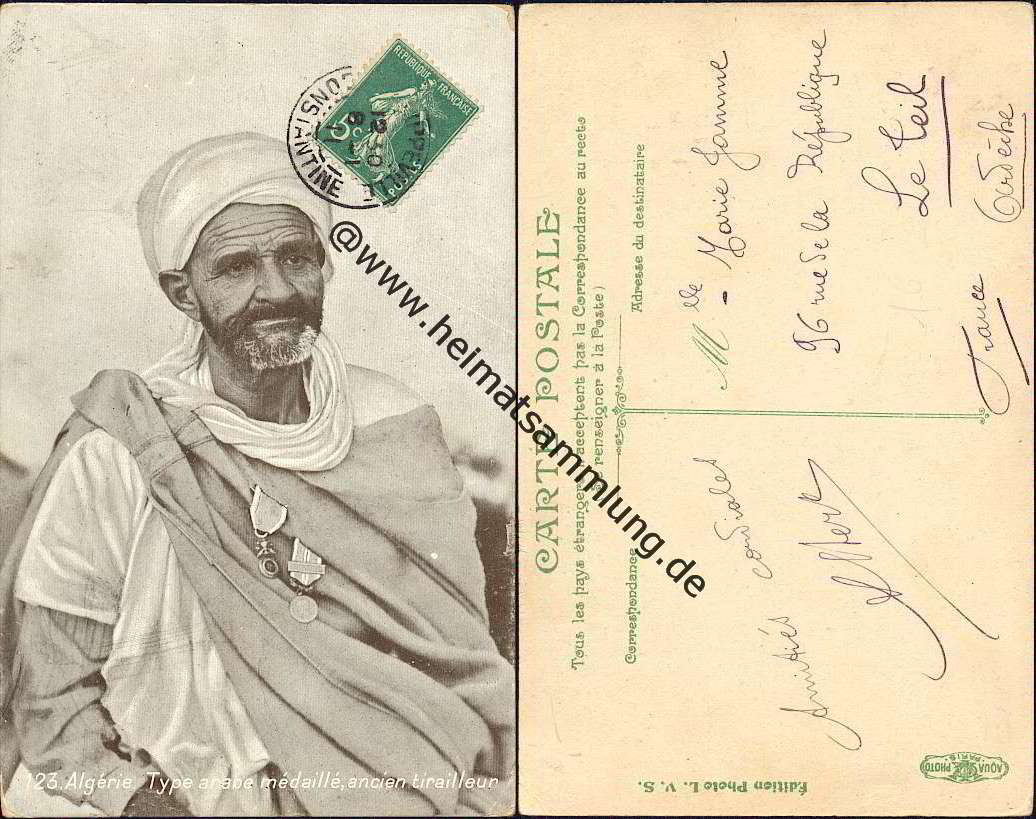 RÉPUBLIQUE FRANÇAISE
5c
POSTES
CONSTANTINE
123. Algérie. Type arabe médaillé, ancien tirailleur
@www.heimatsammlung.de
CARTE POSTALE
Tous les pays étrangers n'acceptent pas la Correspondance au recto
(Se renseigner à la Poste)
Correspondance
Adresse du destinataire
Amitiés cordiales
Albert
Mlle Marie Jamme
96 rue de la République
Le Teil
Ardèche
France
Édition Photo L. V. S.
AQUA PHOTO
PARIS